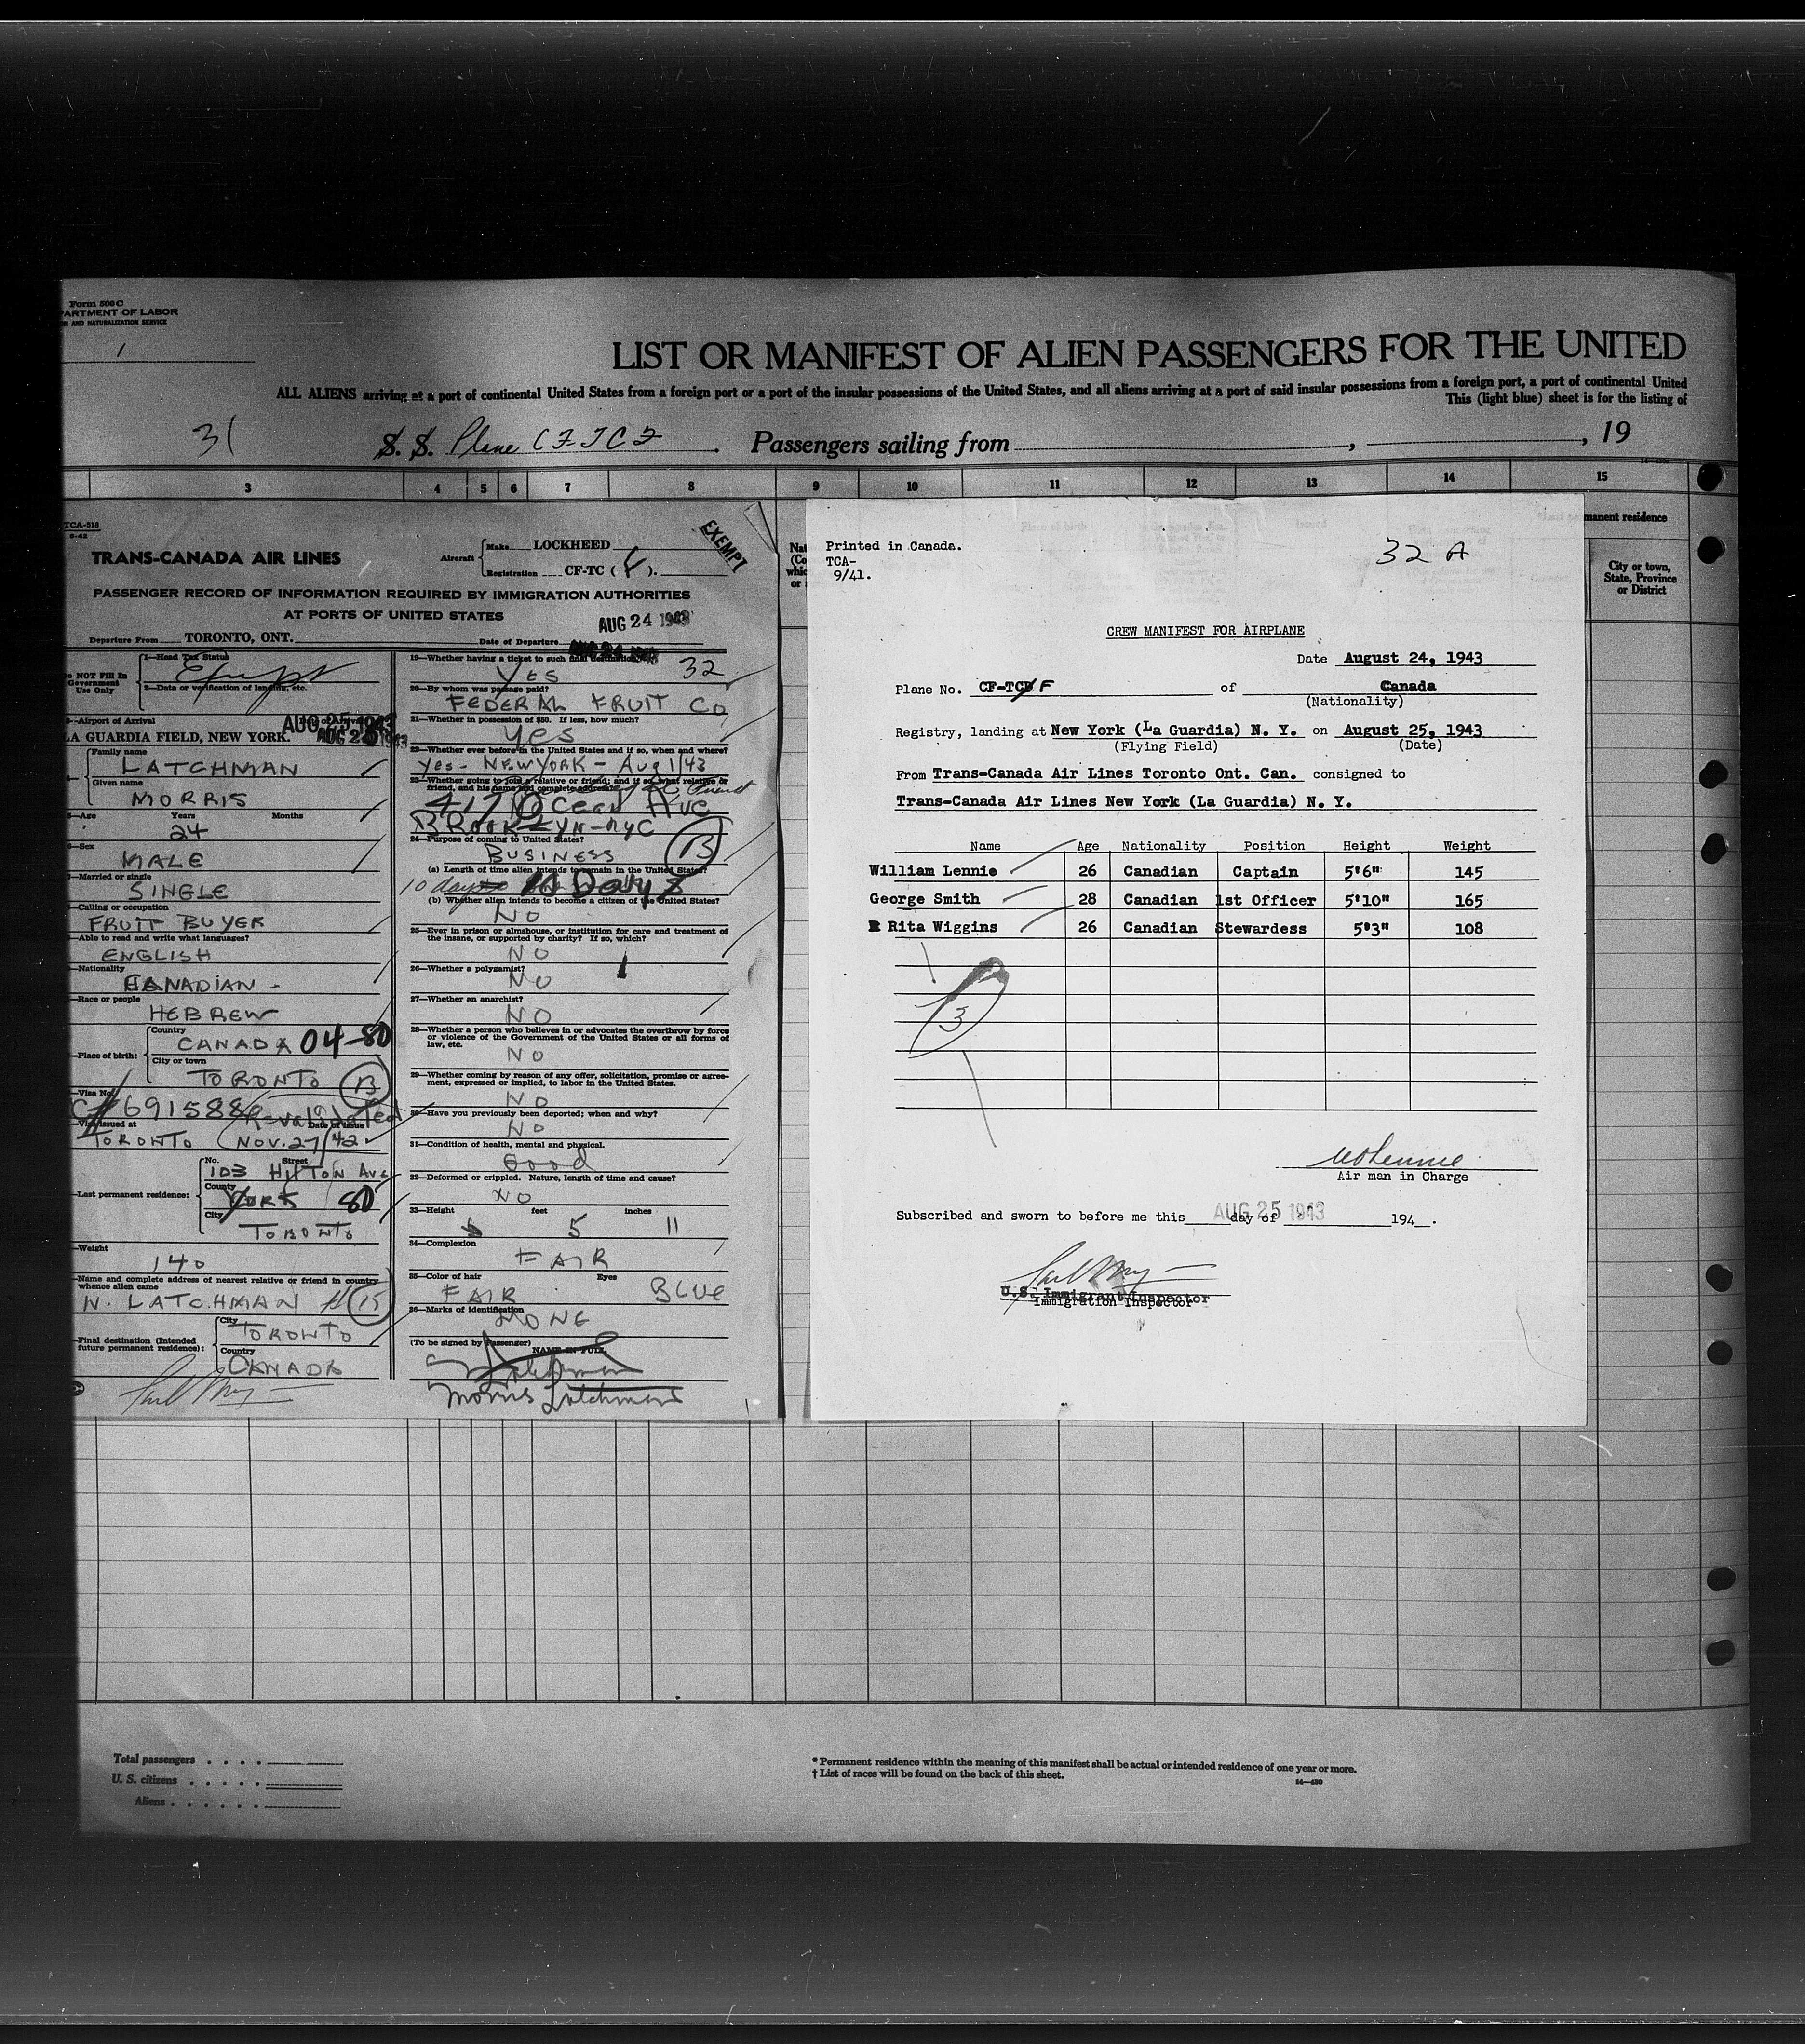 Form 500 C
PARTMENT OF LABOR
N AND NATURALIZATION SERVICE
1
LIST OR MANIFEST OF ALIEN PASSENGERS FOR THE UNITED
ALL ALIENS arriving at a port of continental United States from a foreign port or a port of the insular possessions of the United States, and all aliens arriving at a port of said insular possessions from a foreign port, a port of continental United
This (light blue) sheet is for the listing of
31 S. S. Plane CFTCF. Passengers sailing from , , 19
3 4 5 6 7 8 9 10 11 12 13 14 15
TCA-518
TRANS-CANADA AIR LINES
Aircraft Make LOCKHEED
Registration CF-TC (F).
EXEMPT
PASSENGER RECORD OF INFORMATION REQUIRED BY IMMIGRATION AUTHORITIES
AT PORTS OF UNITED STATES
AUG 24 1943
Departure From TORONTO, ONT. Date of Departure AUG 24 1943
1—Head Tax Status
NOT Fill In
Government
Use Only
2—Data or verification of landing, etc.
—Airport of Arrival
LA GUARDIA FIELD, NEW YORK. AUG 25 1943
Family name
LATCHMAN
Given name
MORRIS
—Age Years Months
24
—Sex
MALE
—Married or single
SINGLE
—Calling or occupation
FRUIT BUYER
—Able to read and write what languages?
ENGLISH
—Nationality
CANADIAN -
—Race or people
HEBREW
—Place of birth: Country
CANADA 04-80
City or town
TORONTO B
—Visa No.
C# 691588 Revalidated
—Visa issued at Date of issue
TORONTO NOV. 27/42
—Last permanent residence: No. Street
103 HILTON AVE
County
YORK 80
City
TORONTO
—Weight
140
—Name and complete address of nearest relative or friend in country
whence alien came
N. LATCHMAN # 15
—Final destination (Intended
future permanent residence): City
TORONTO
Country
CANADA
19—Whether having a ticket to such final destination
YES 32
20—By whom was passage paid?
FEDERAL FRUIT CO
21—Whether in possession of $50. If less, how much?
yes
22—Whether ever before in the United States and if so, when and where?
Yes - NEW YORK - Aug 1/43
23—Whether going to join a relative or friend; and if so, what relative or
friend, and his name and complete address?
417 Ocean Ave
BROOKLYN - NYC
24—Purpose of coming to United States?
BUSINESS B
(a) Length of time alien intends to remain in the United States?
10 days 10 Days
(b) Whether alien intends to become a citizen of the United States?
NO
25—Ever in prison or almshouse, or institution for care and treatment of
the insane, or supported by charity? If so, which?
NO
26—Whether a polygamist?
NO
27—Whether an anarchist?
NO
28—Whether a person who believes in or advocates the overthrow by force
or violence of the Government of the United States or all forms of
law, etc.
NO
29—Whether coming by reason of any offer, solicitation, promise or agree-
ment, expressed or implied, to labor in the United States.
NO
30—Have you previously been deported; when and why?
NO
31—Condition of health, mental and physical.
Good
32—Deformed or crippled. Nature, length of time and cause?
NO
33—Height feet inches
5 11
34—Complexion
FAIR
35—Color of hair Eyes
FAIR BLUE
36—Marks of identification
NONE
(To be signed by Passenger) NAME IN FULL
Morris Latchman
Printed in Canada.
TCA-
9/41.
32 A
CREW MANIFEST FOR AIRPLANE
Date August 24, 1943
Plane No. CF-TCF of Canada
(Nationality)
Registry, landing at New York (La Guardia) N. Y. on August 25, 1943
(Flying Field) (Date)
From Trans-Canada Air Lines Toronto Ont. Can. consigned to
Trans-Canada Air Lines New York (La Guardia) N. Y.
Name Age Nationality Position Height Weight
William Lennie 26 Canadian Captain 5'6" 145
George Smith 28 Canadian 1st Officer 5'10" 165
Rita Wiggins 26 Canadian Stewardess 5'3" 108
3
Air man in Charge
Subscribed and sworn to before me this day of 194 .
AUG 25 1943
U.S. Immigrant Inspector
Immigration Inspector
manent residence
City or town,
State, Province
or District
Total passengers
U. S. citizens
Aliens
* Permanent residence within the meaning of this manifest shall be actual or intended residence of one year or more.
† List of races will be found on the back of this sheet.
14—430